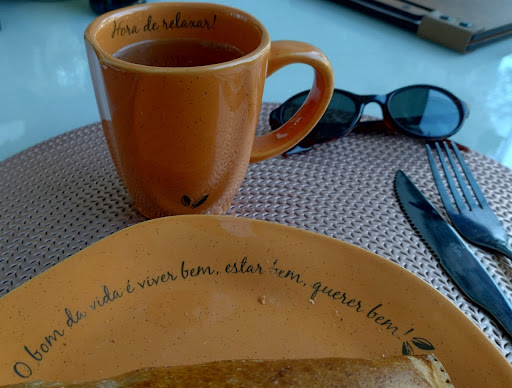 Hora de relaxar!
O bom da vida é viver bem, estar bem, querer bem!